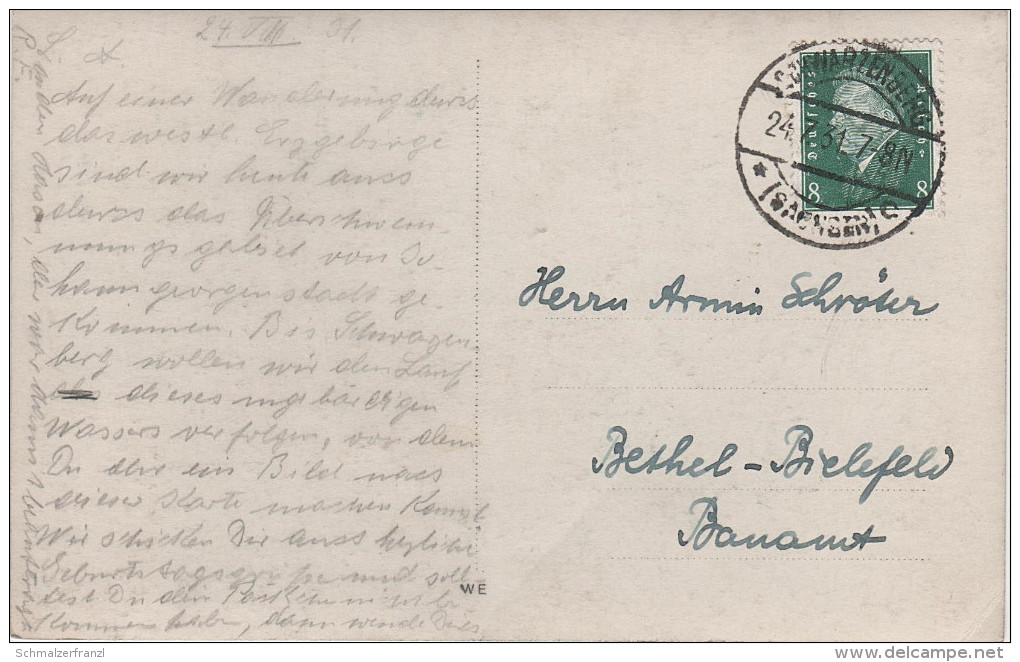 24. VII. 31.
L. A.
Auf einer Wanderung durchs
das westl. Erzgebirge
sind wir heute auch
durchs das Überschwem-
mungsgebiet von Jo-
hanngeorgenstadt ge-
kommen. Bis Schwarzen
berg wollen wir den Lauf
dieses ungebärdigen
Wassers verfolgen, von dem
Du dir ein Bild nach
dieser Karte machen kannst
Wir schicken Dir auch herzliche
Geburtstagsgrüße und soll-
test Du den
kommen haben, dann wende Dich
R. E.
SCHWARZENBERG
24.7.31. 7-8N
* (SACHSEN)
Deutsches Reich
8 8
Herrn Armin Schröter
Bethel-Bielefeld
Bauamt
WE
© Schmalzerfranzl
www.delcampe.net